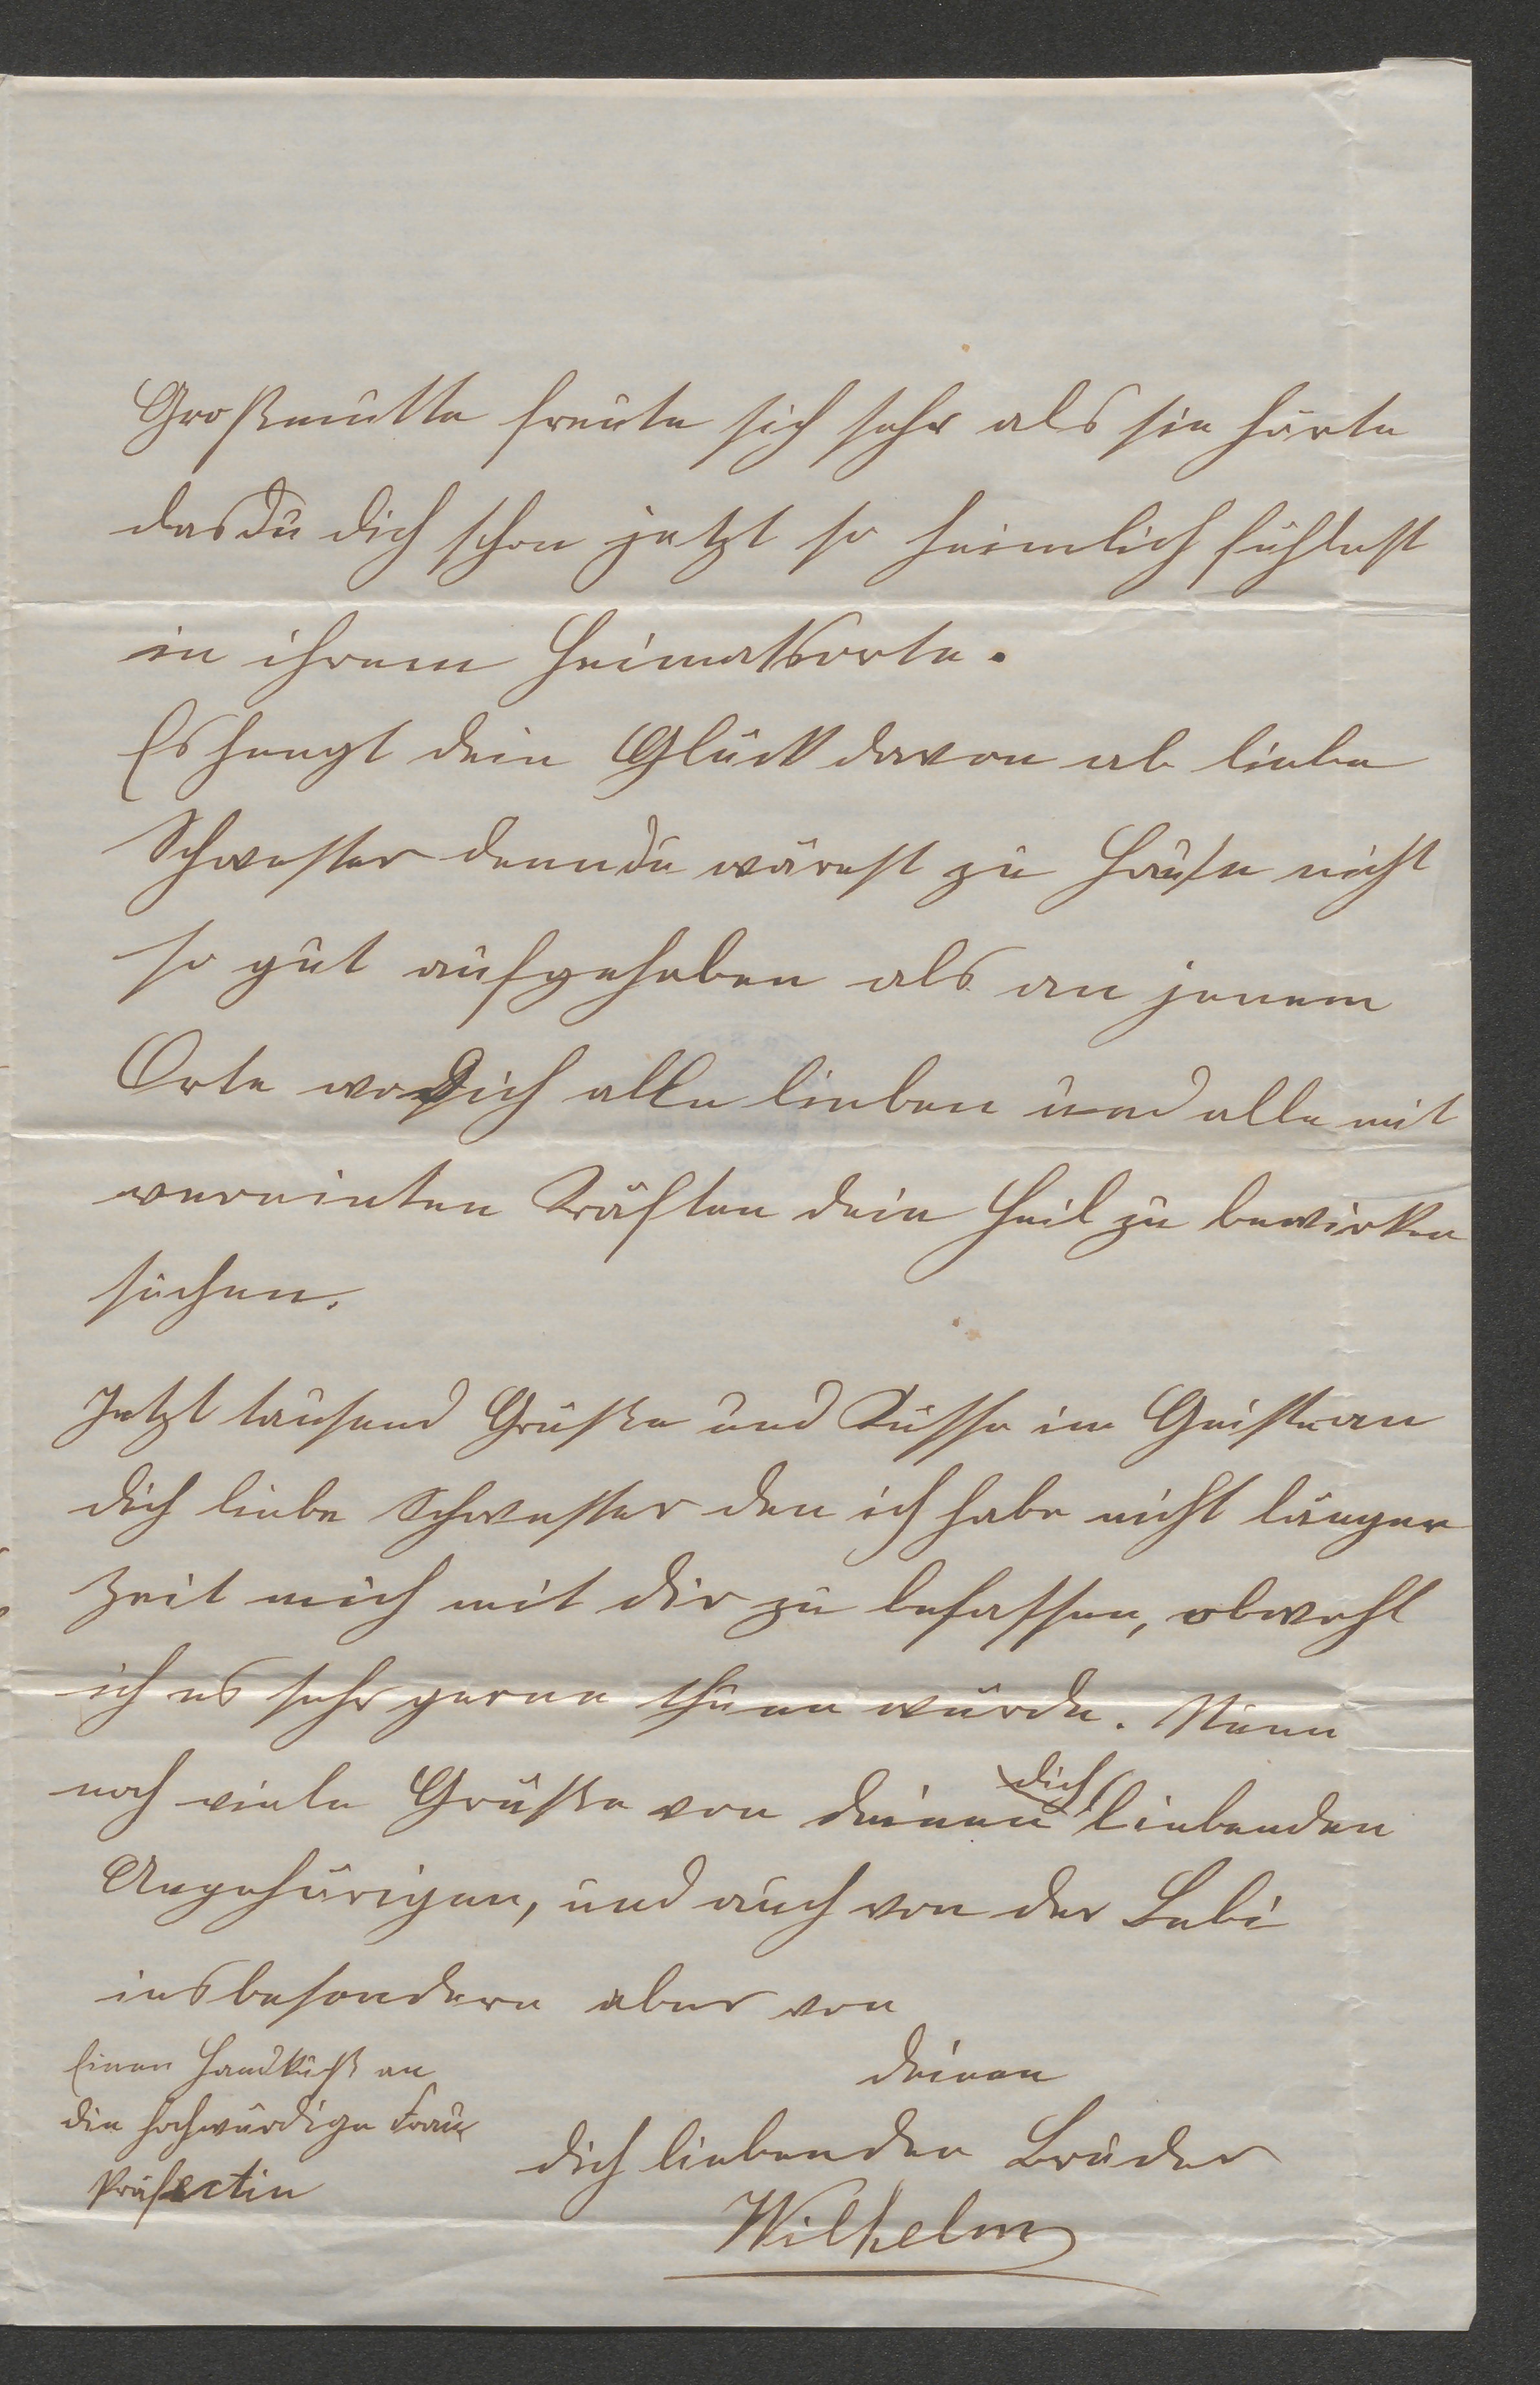 Großmutte freute sich sehr als sie hörte
das du dich schon jetzt so heimlich fühlest
in ihrem Heimatsorte.
Es hengt dein Glück davon ab liebe
Schwester denn du wärest zu Hause nicht
so gut aufgehoben als an jenem
Orte wo dich alle lieben und alle mit
vereinten Kräften dein Heil zu bewirken
suchen.
Jetzt tausend Grüße und Küsse im Geiste an
dich liebe Schwester den ich habe nicht länger
Zeit mich mit dir zu befassen, obwohl
ich es sehr gerne thuen würde. Nunn
noch viele Grüße von deinen dich liebenden
Angehörigen, und auch von der Babi
insbesondere aber von
deinen
dich liebenden Bruder
Wilhelm
Einen Handkuß an
die hochwürdige Frau
Präfectin